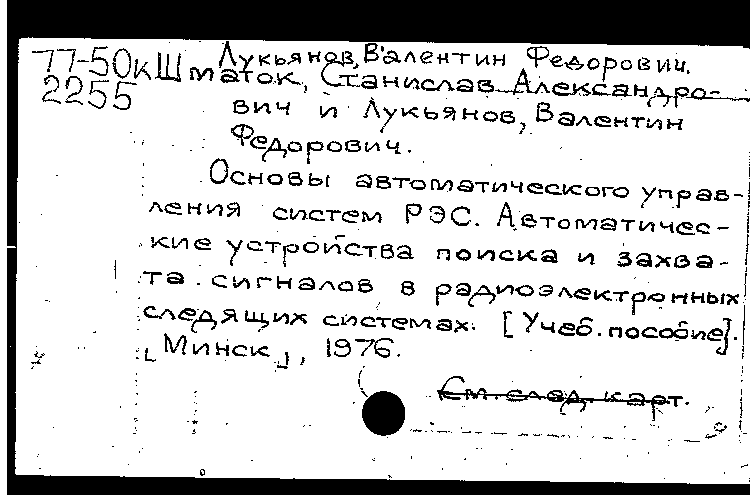 77-50к Лукьянов, Валентин Федорович.
2255 Шматок, Станислав Александро-
вич и Лукьянов, Валентин
Федорович.
Основы автоматического управ-
ления систем РЭС. Автоматичес-
кие устройства поиска и захва-
та сигналов в радиоэлектронных
следящих системах. [Учеб. пособие].
[Минск], 1976.
См. след. карт.